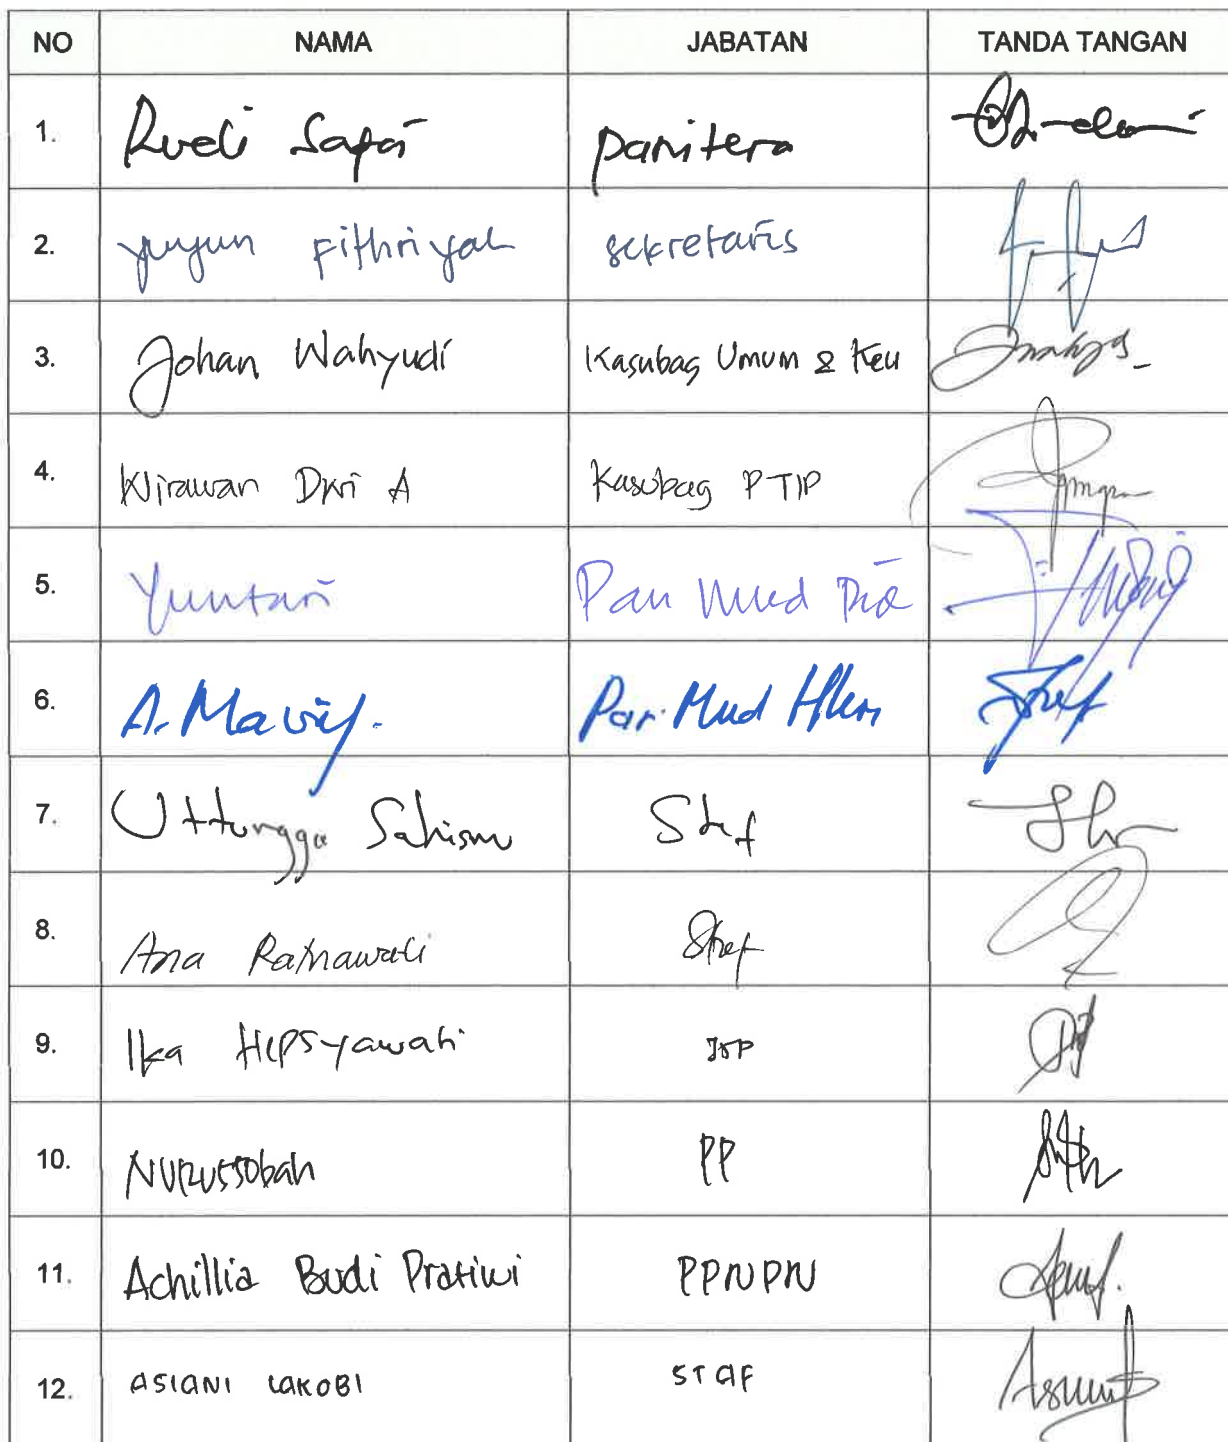 NO NAMA JABATAN TANDA TANGAN
1. Rudi Sapari Panitera
2. yuyun Fithriyah sekretaris
3. Johan Wahyudi Kasubag Umum & Keu
4. Wirawan Dwi A Kasubag PTIP
5. Yuntari Pan Mud
6. A. Ma'ruf. Pan. Mud
7. Uttungga Staf
8. Ana Ratnawati Staf
9. Ika Hepsyawati JSP
10. NURUSSObah PP
11. Achillia Budi Pratiwi PPNPN
12. ASIANI LAKOBI STAF